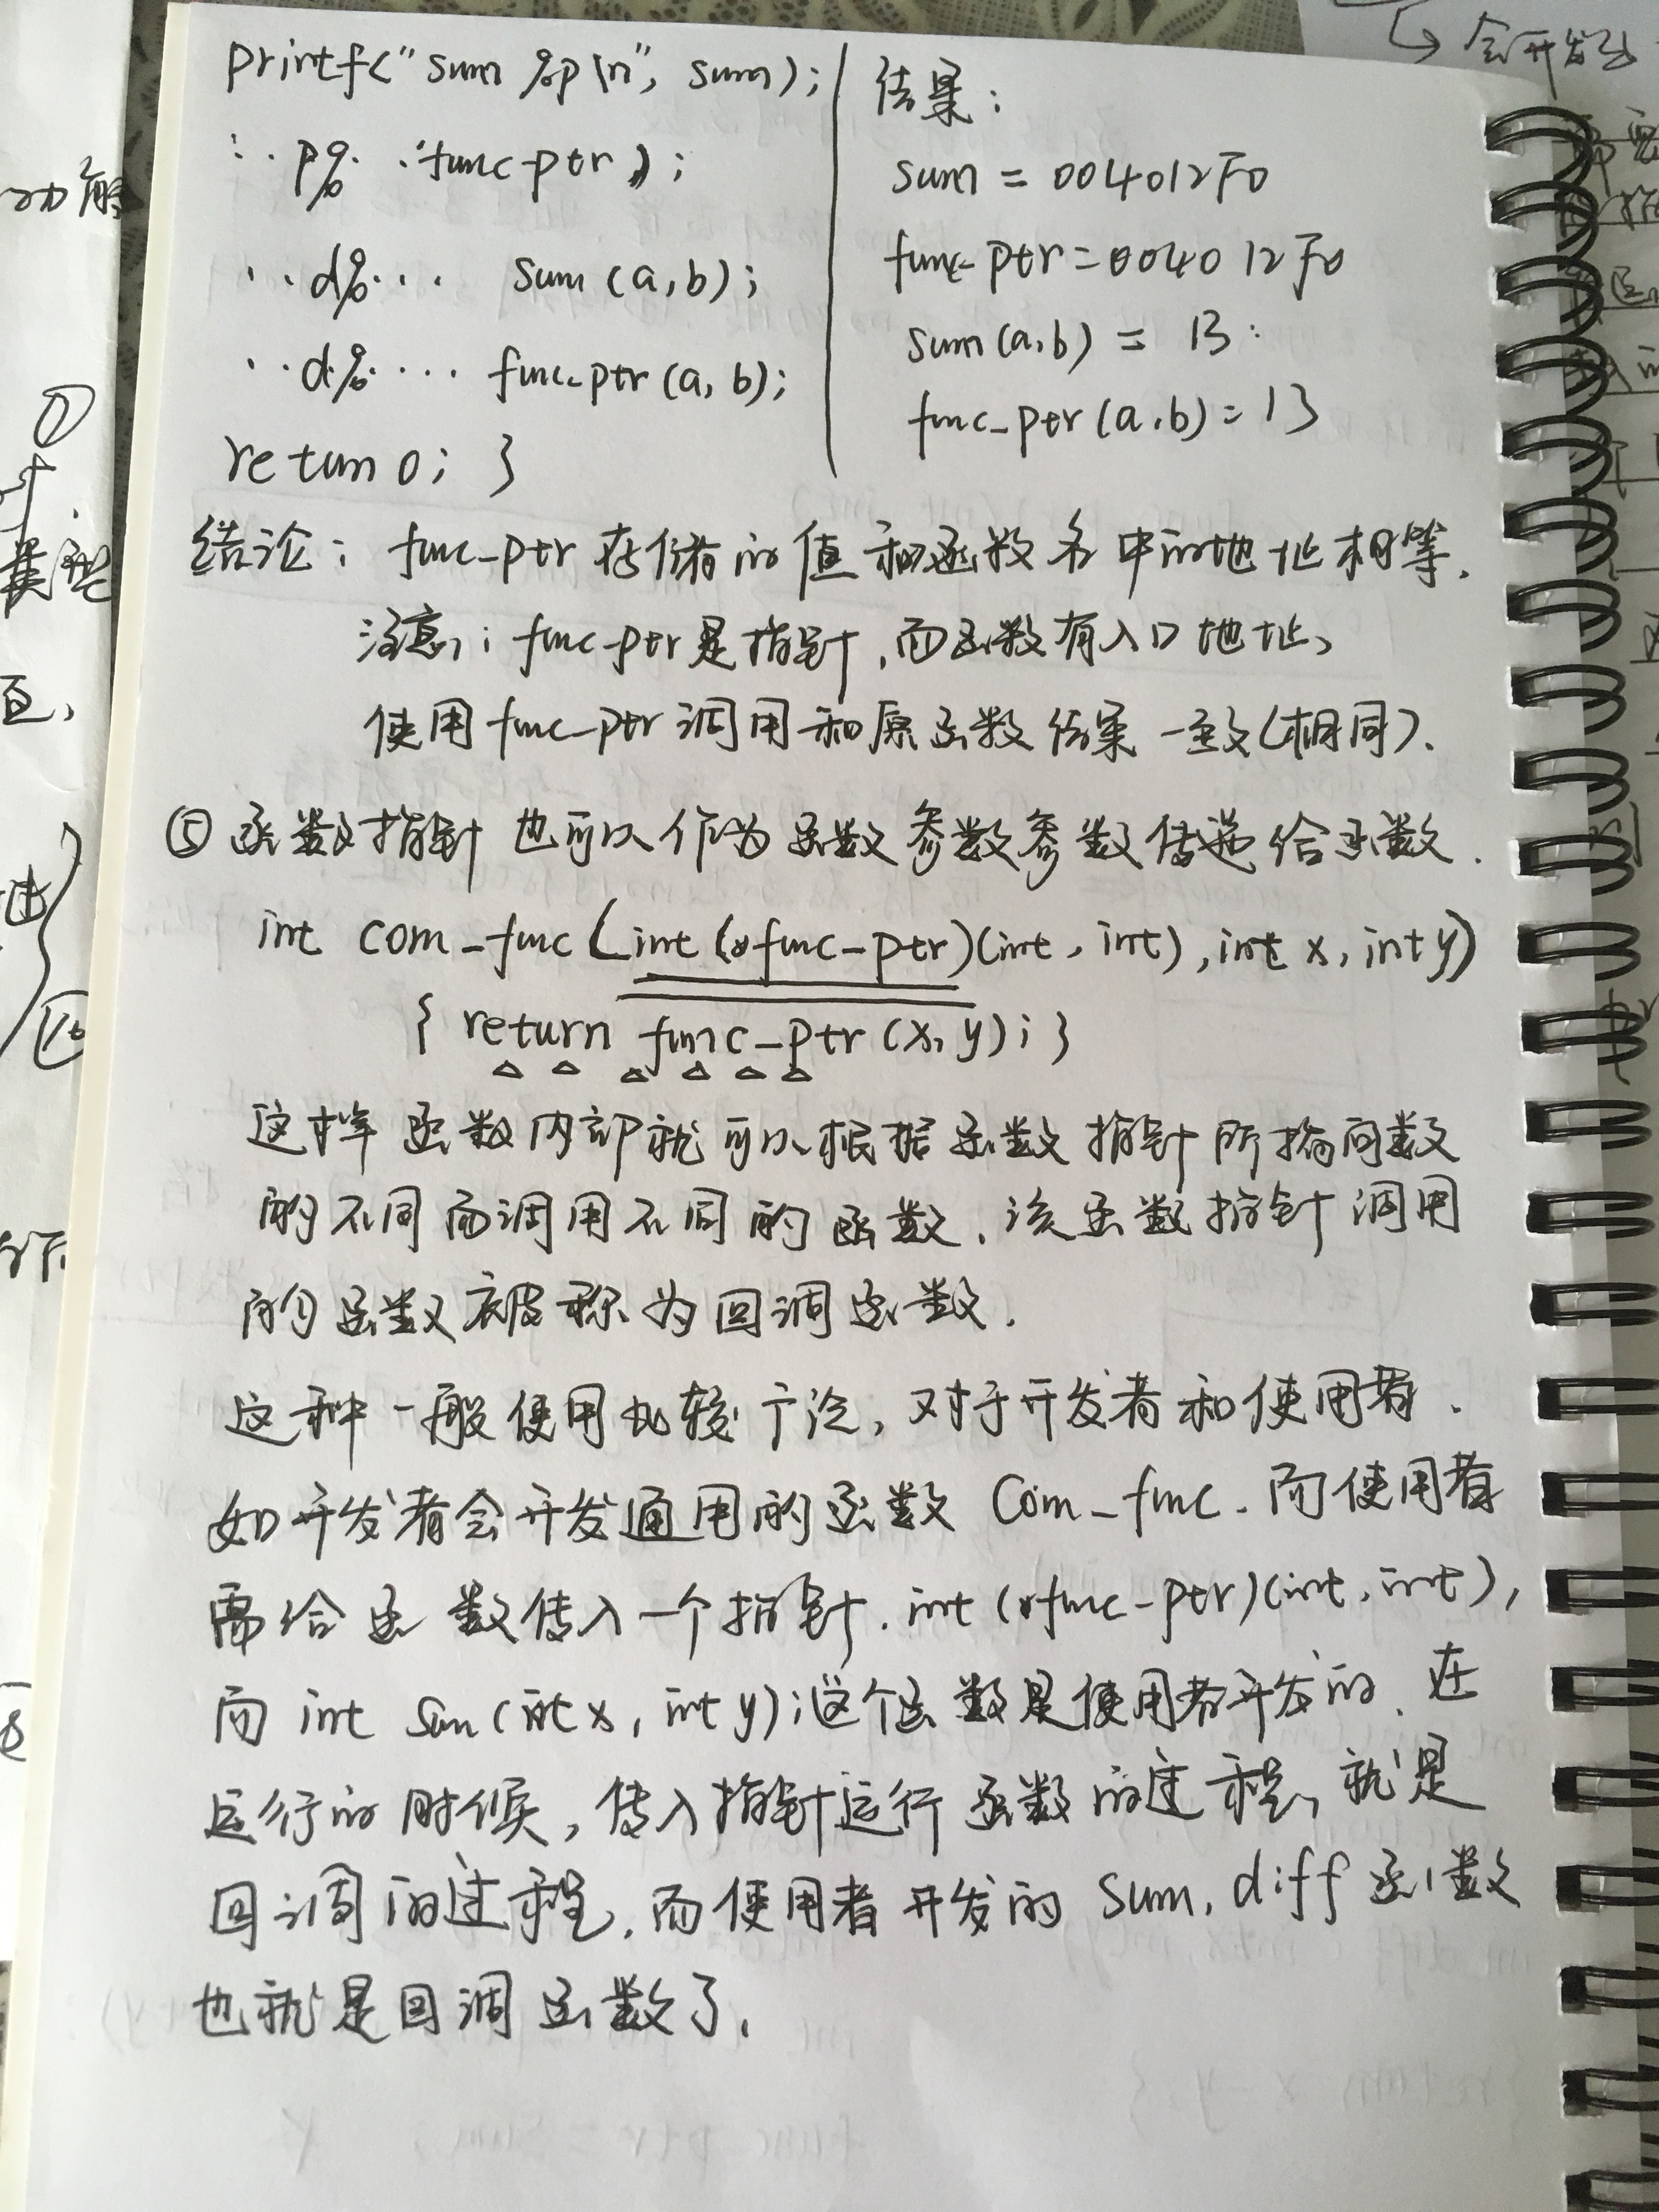 printf("sum %p\n", sum);
: . . p% . . func-ptr);
. . d% . . . sum(a,b);
. . d% . . . func_ptr(a, b);
return 0; }
结果:
sum = 004012F0
func_ptr = 004012F0
sum(a,b) = 13
func_ptr(a,b) = 13
结论: func_ptr 存储的值和函数名中的地址相等.
注意: func_ptr是指针,而函数有入口地址、
使用func_ptr调用和原函数结果一致(相同).
⑤ 函数指针也可以作为函数参数参数传递给函数.
int com_func(int (*func_ptr)(int, int), int x, int y)
{ return func_ptr(x, y); }
这样函数内部就可以根据函数指针所指向数
的不同而调用不同的函数、该函数指针调用
的函数被称为回调函数.
这种一般使用比较广泛, 对于开发者和使用者.
如开发者会开发通用的函数 Com_func. 而使用者
需给函数传入一个指针. int (*func-ptr)(int, int),
而 int Sum(int x, int y);这个函数是使用者开发的、在
运行的时候, 传入指针运行函数的过程, 就是
回调的过程. 而使用者开发的 Sum, diff 函数
也就是回调函数了.
会开发
功能
类型